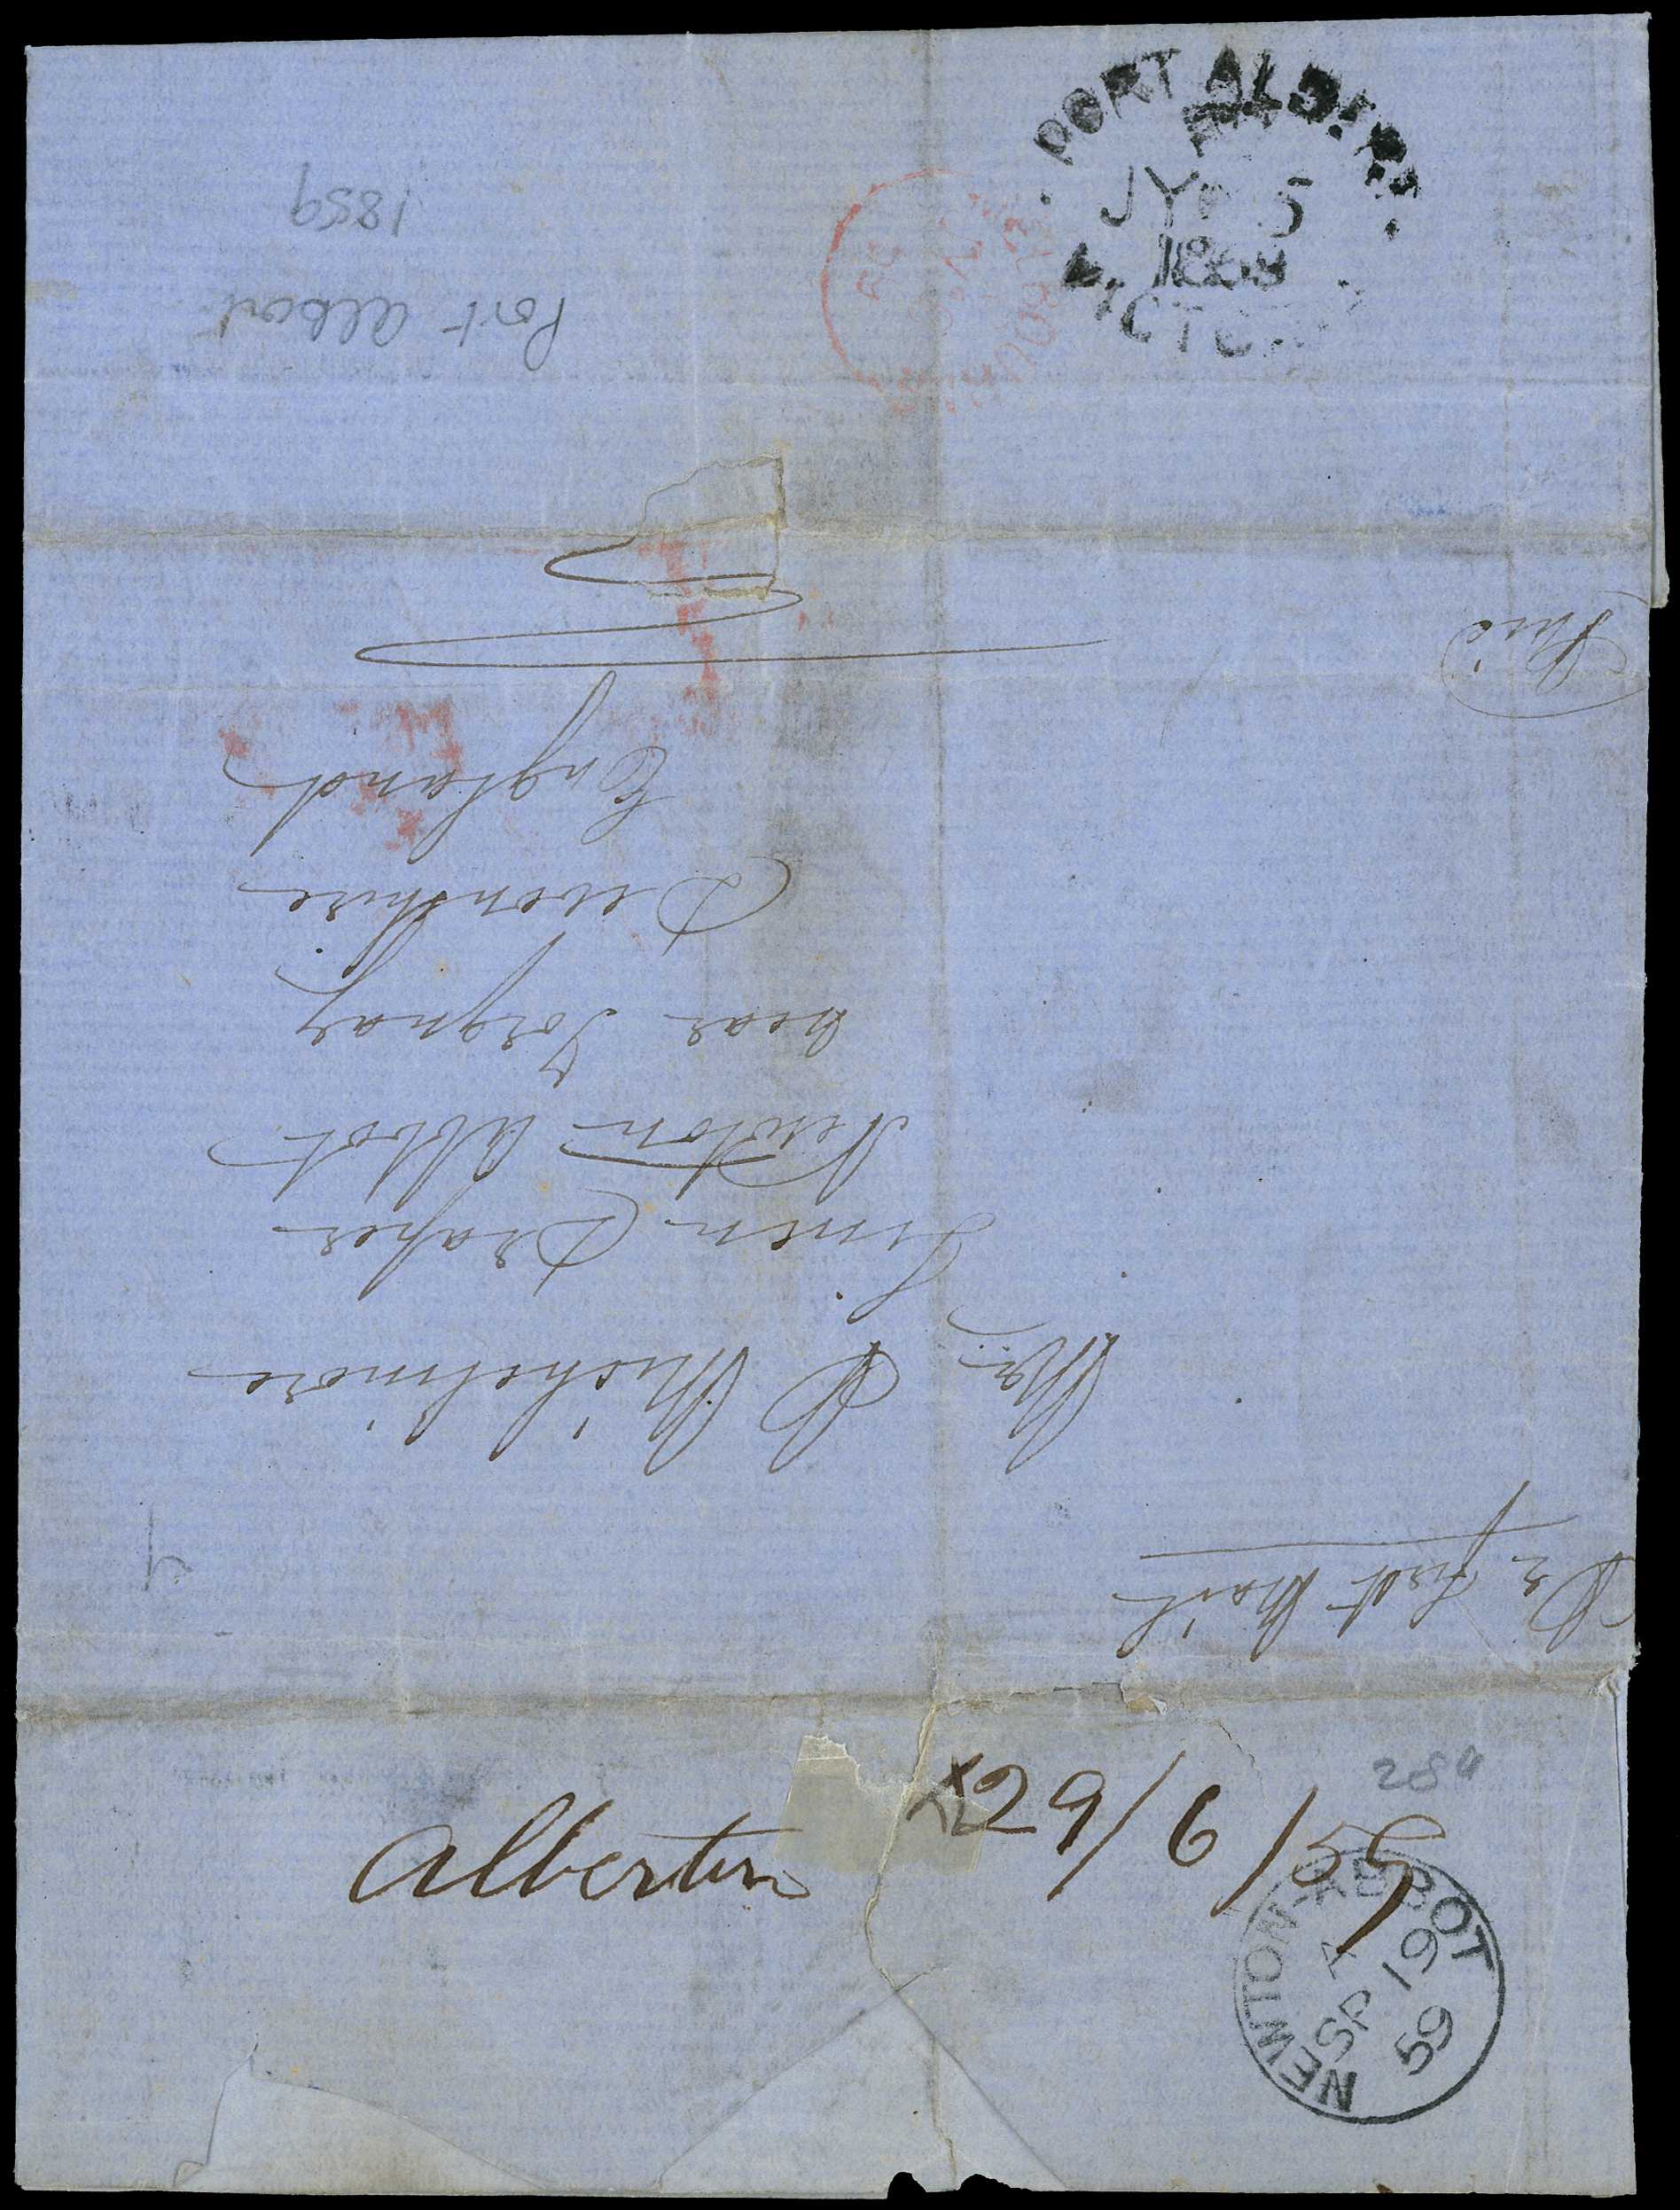 PORT ALBERT
JY 5
1859
VICTORIA
1859
Port Albert
Paid
Pr first Mail
Mr P Michelmore
Linen Draper
Newton Abbot
near Torquay
Devonshire
England
29/6/59
Alberton
NEWTON-ABBOT
A
SP 19
59